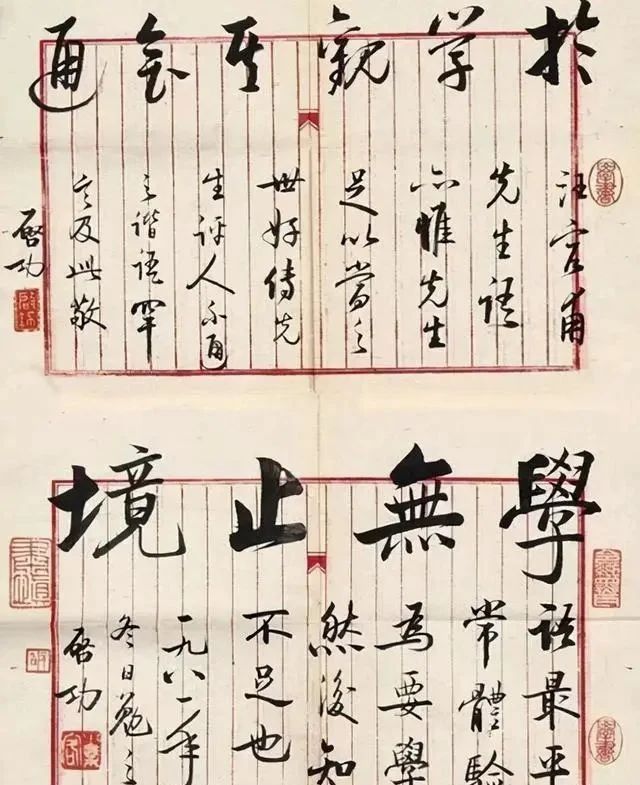 於学觀其会通
汪容甫
先生語
亦惟先生
足以當之
世好傳先
生評人不通
之諧語罕
言及此敬
啓功
學無止境
語最平
常體驗
為要學
然後知
不足也
一九八一年
冬日
啓功